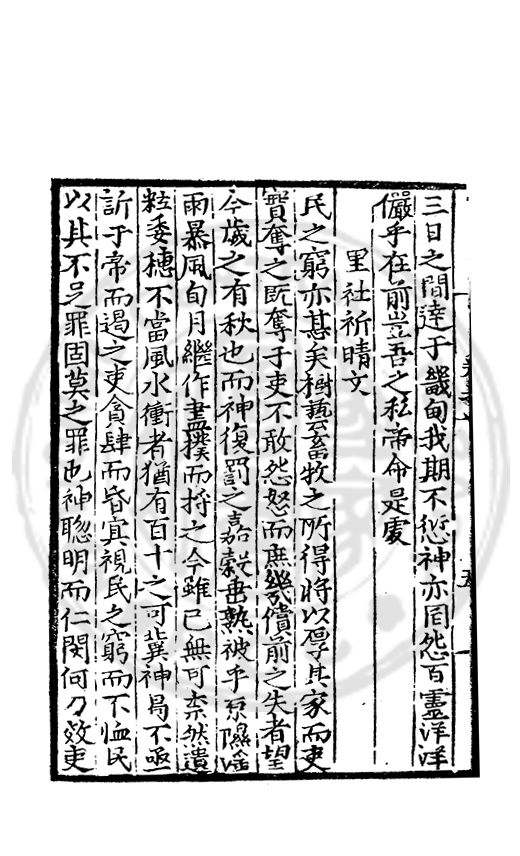 三日之間達于畿甸我期不愆神亦罔怨百靈洋洋
儼乎在前豈吾之私帝命是虔
里社祈晴文
民之窮亦甚矣樹藝畜牧之所得將以厚其家而吏
實奪之既奪于吏不敢怨怒而庶幾償前之失者望
今歲之有秋也而神復罰之嘉穀垂熟被乎原隰淫
雨暴風旬月繼作盡撲而捋之今雖已無可柰然遺
粒委穗不當風水衝者猶有百十之可冀神曷不亟
訴于帝而遏之吏貪肆而昏冥視民之窮而不恤民
以其不足罪固莫之罪也神聰明而仁閔何乃效吏